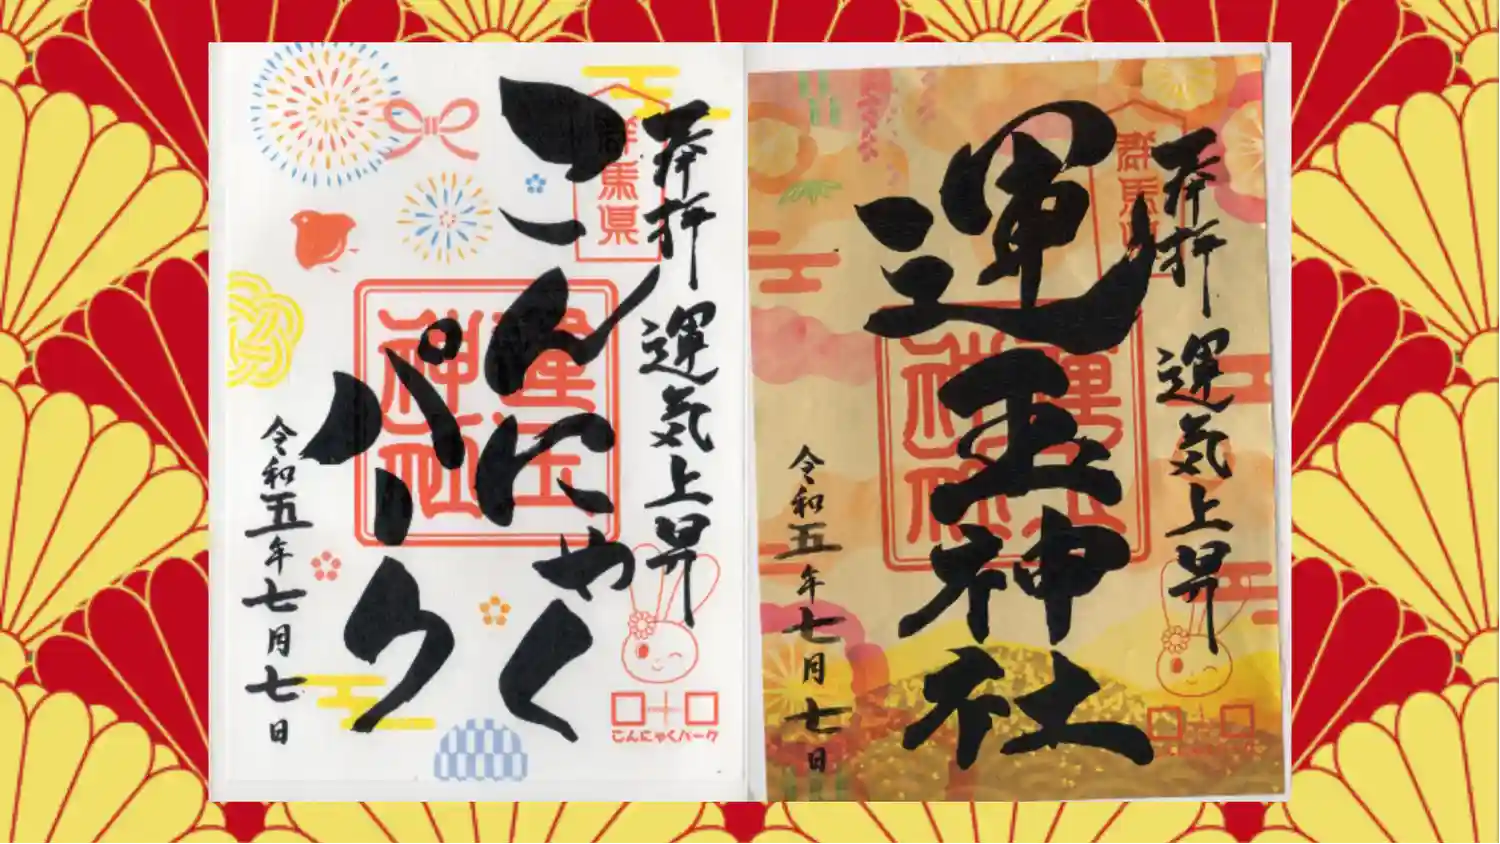 奉拝 運気上昇
群馬県
こんにゃく
パーク
運玉神社
令和五年七月七日
こんにゃくパーク
奉拝 運気上昇
群馬県
運玉神社
運玉神社
令和五年七月七日